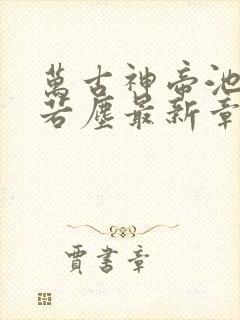 萬古神帝池
若塵最新章
賈書章